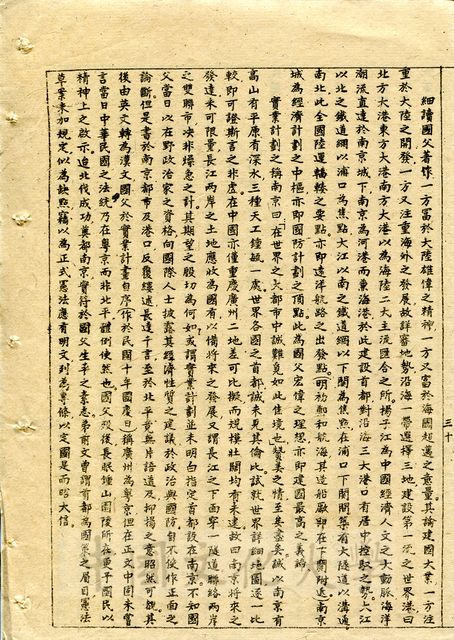 三十
細讀國父著作一方富於大陸雄偉之精神一方又富於海國超邁之意量其論建國大業一方注
重於大陸之開發一方又注重海外之發展故詳審地勢沿海一帶選擇三地建設第一流之世界港曰
北方大港東方大港南方大港以為海陸二大主流匯合之所揚子江為中國經濟人文之大動脈海洋
潮流直達於南京城下南京為河港而東海港於此建設首都對沿海三大港口有居中控馭之勢大江
以北之鐵道網以浦口為焦點大江以南之鐵道網以下關為焦點在浦口下關間築有大隧道以溝通
南北此全國陸運輻輳之要點亦即遠洋航路之出發點明初鄭和航海其造船廠即在下關附近南京
城為經濟計劃之中樞亦即國防計劃之頂點此為國父宏偉之理想亦即建國最高之義諦
實業計劃之稱南京曰「在世界之大都市中誠難覓如此佳境也」贊美之情至矣盡矣誠以南京有
高山有平原有深水三種天工鍾毓一處世界各國之首都誠未見其倫比試就世界詳細地圖逐一比
較即可證斯言之非虛在中國亦僅重慶廣州二地差可比擬而規模壯闊均有未逮故曰南京將來之
發達未可限量長江兩岸之土地應收為國有以備將來之發展又謂長江之下面穿一隧道聯絡兩岸
之雙聯市决非燥急之計其期望之殷切為何如或謂實業計劃並未明白指定首都設在南京不知國
父當日以在野政治家之資格向國際人士披露其經濟性質之建議於政治與國防自不便作正面之
論斷但是書於南京都市及港口反覆縷述長達千言至於北平竟無片語道及抑揚之意昭然可覩其
後由英文轉為漢文國父於實業計畫自序（作於民國十年國慶日）稱廣州為粵京但在正文中固未嘗
言當日中華民國之法統乃在粵京而非北平體例使然也國父歿後長眠鍾山園陵所在更予國民以
精神上之啟示迨北伐成功奠都南京實符於國父生平之素志弟前文曾謂首都為國策之眉目憲法
草案未加規定似為缺點竊以為正式憲法應有明文列為專條以定國是而昭大信